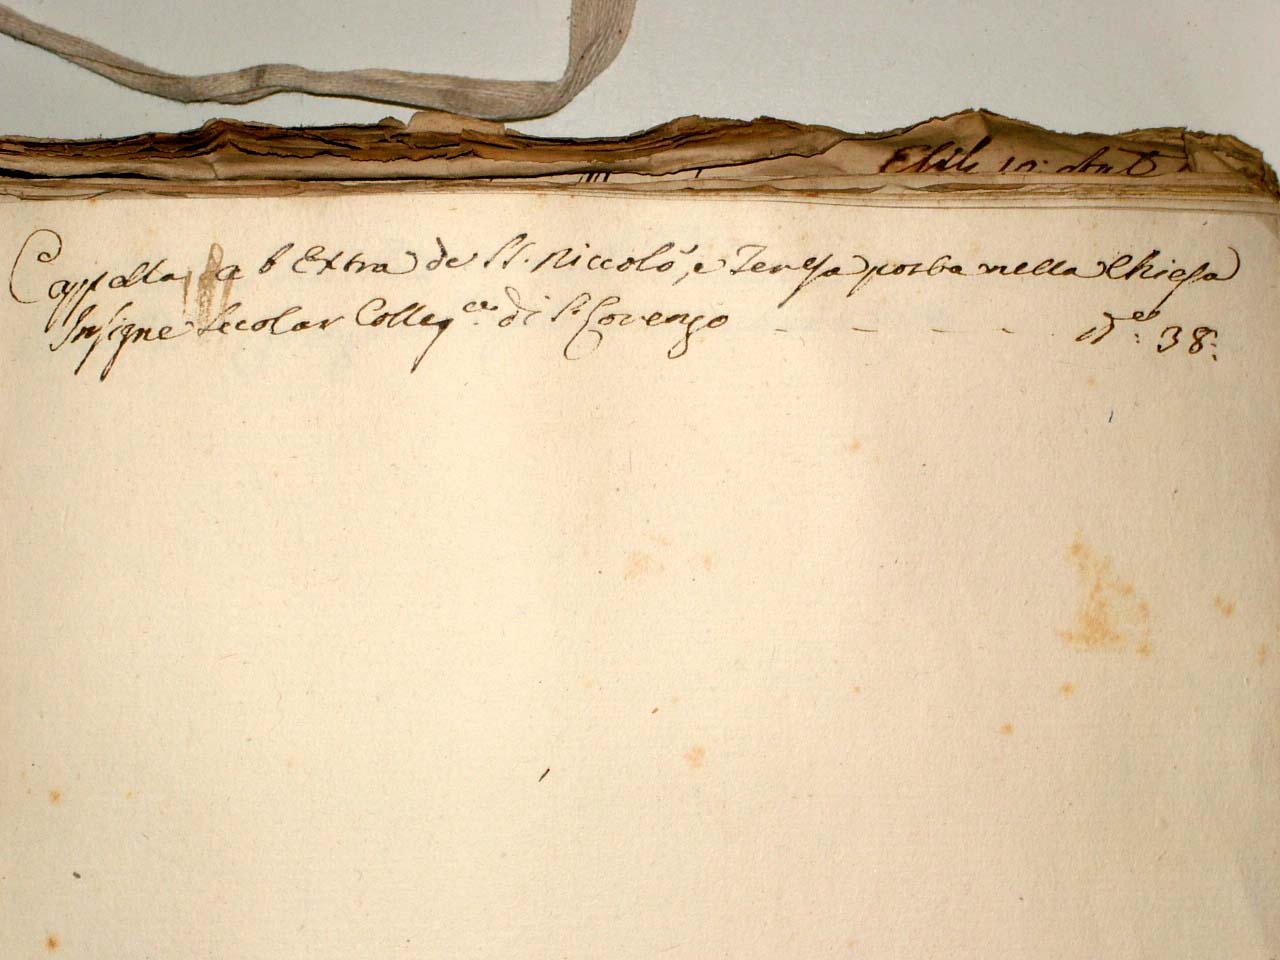 Cappella ab Extra de SS. Niccolò, e Teresa posta nella Chiesa
Insigne Secolar Colleg.ta di S. Lorenzo - - - - - 38: